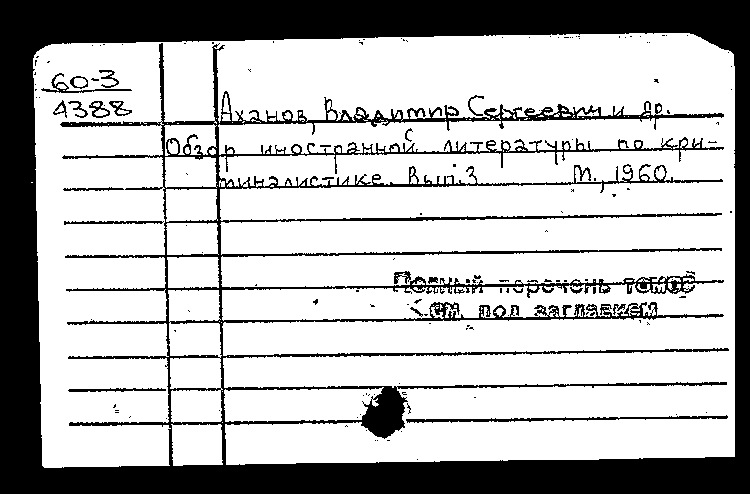 60-3
4388
Аханов, Владимир Сергеевич и др.
Обзор иностранной литературы по кри-
миналистике. Вып.3 М., 1960.
Полный перечень томов
см. под заглавием